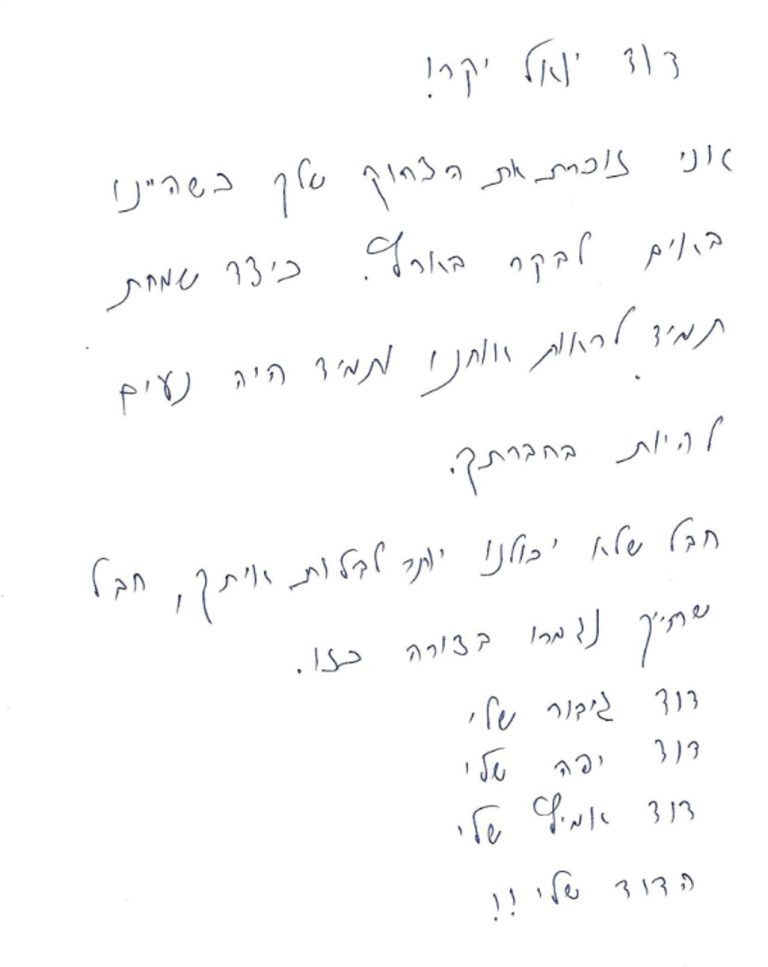 דוד יואל יקר!
אני זוכרת את הצחוק שלך כשהיינו
באים לבקר בארץ. כיצד שמחת
תמיד לראות אותנו ותמיד היה נעים
להיות בחברתך.
חבל שלא יכולנו יותר לבלות איתך, חבל
שחייך נגמרו בצורה כזו.
דוד גיבור שלי
דוד יפה שלי
דוד אמיץ שלי
הדוד שלי!!